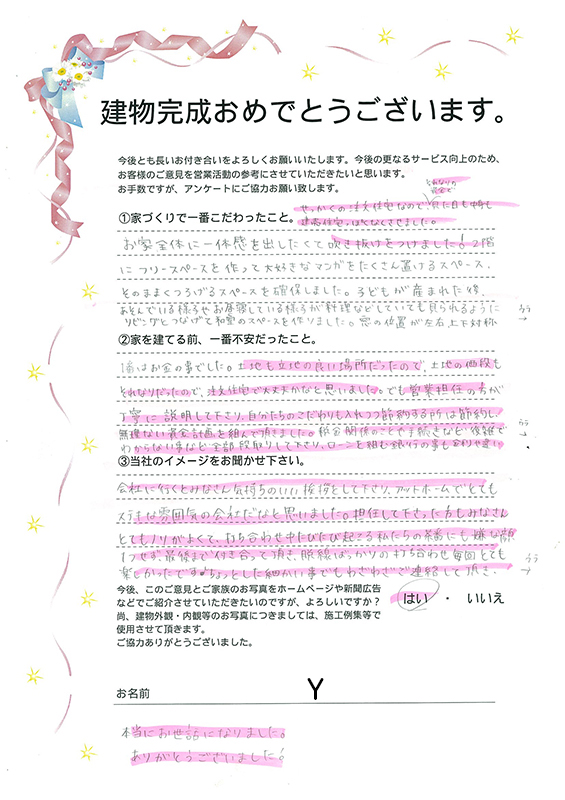 建物完成おめでとうございます。
今後とも長いお付き合いをよろしくお願いいたします。今後の更なるサービス向上のため、
お客様のご意見を営業活動の参考にさせていただきたいと思います。
お手数ですが、アンケートにご協力お願い致します。
それなりの
資金で
①家づくりで一番こだわったこと。
せっかくの注文住宅なので、見た目も中身も
建売住宅っぽくなくさせました。
お家全体に一体感を出したくて吹き抜けをつけました!2階
にフリースペースを作って大好きなマンガをたくさん置けるスペース、
そのままくつろげるスペースを確保しました。子どもが産まれた後、
あそんでいる様子やお昼寝している様子が料理などしていても見られるように
リビングとつなげて和室のスペースを作りました。窓の位置が左右上下対称
②家を建てる前、一番不安だったこと。
1番はお金の事でした。土地も立地の良い場所だったので、土地の価段も
それなりだったので、注文住宅で大丈夫かなと思いました。でも営業担任の方が
丁寧に説明して下さり、自分たちのこだわりも入れつつ節約する所は節約し、
無理ない資金計画を組んで頂きました。税金関係のことや手続きなど、複雑で
わからない事など全部段取りして下さり、ローンを組む銀行の事も
③当社のイメージをお聞かせ下さい。
会社に行くとみなさん気持ちのいい挨拶をして下さり、アットホームでとても
ステキな雰囲気の会社だなと思いました。担任して下さった方もみなさん
とてもノリがよくて、打ち合わせ中たびたび起こる私たちの茶番にも嫌な顔
1つせず、最後まで付き合って頂き、脱線ばっかりの打ち合わせ毎回とても
楽しかったです♪ちょっとした細かい事でもわざわざご連絡して頂き、
今後、このご意見とご家族のお写真をホームページや新聞広告
などでご紹介させていただきたいのですが、よろしいですか?
はい ・ いいえ
尚、建物外観・内観等のお写真につきましては、施工例集等で
使用させて頂きます。
ご協力ありがとうございました。
お名前 Y
本当にお世話になりました。
ありがとうございました!